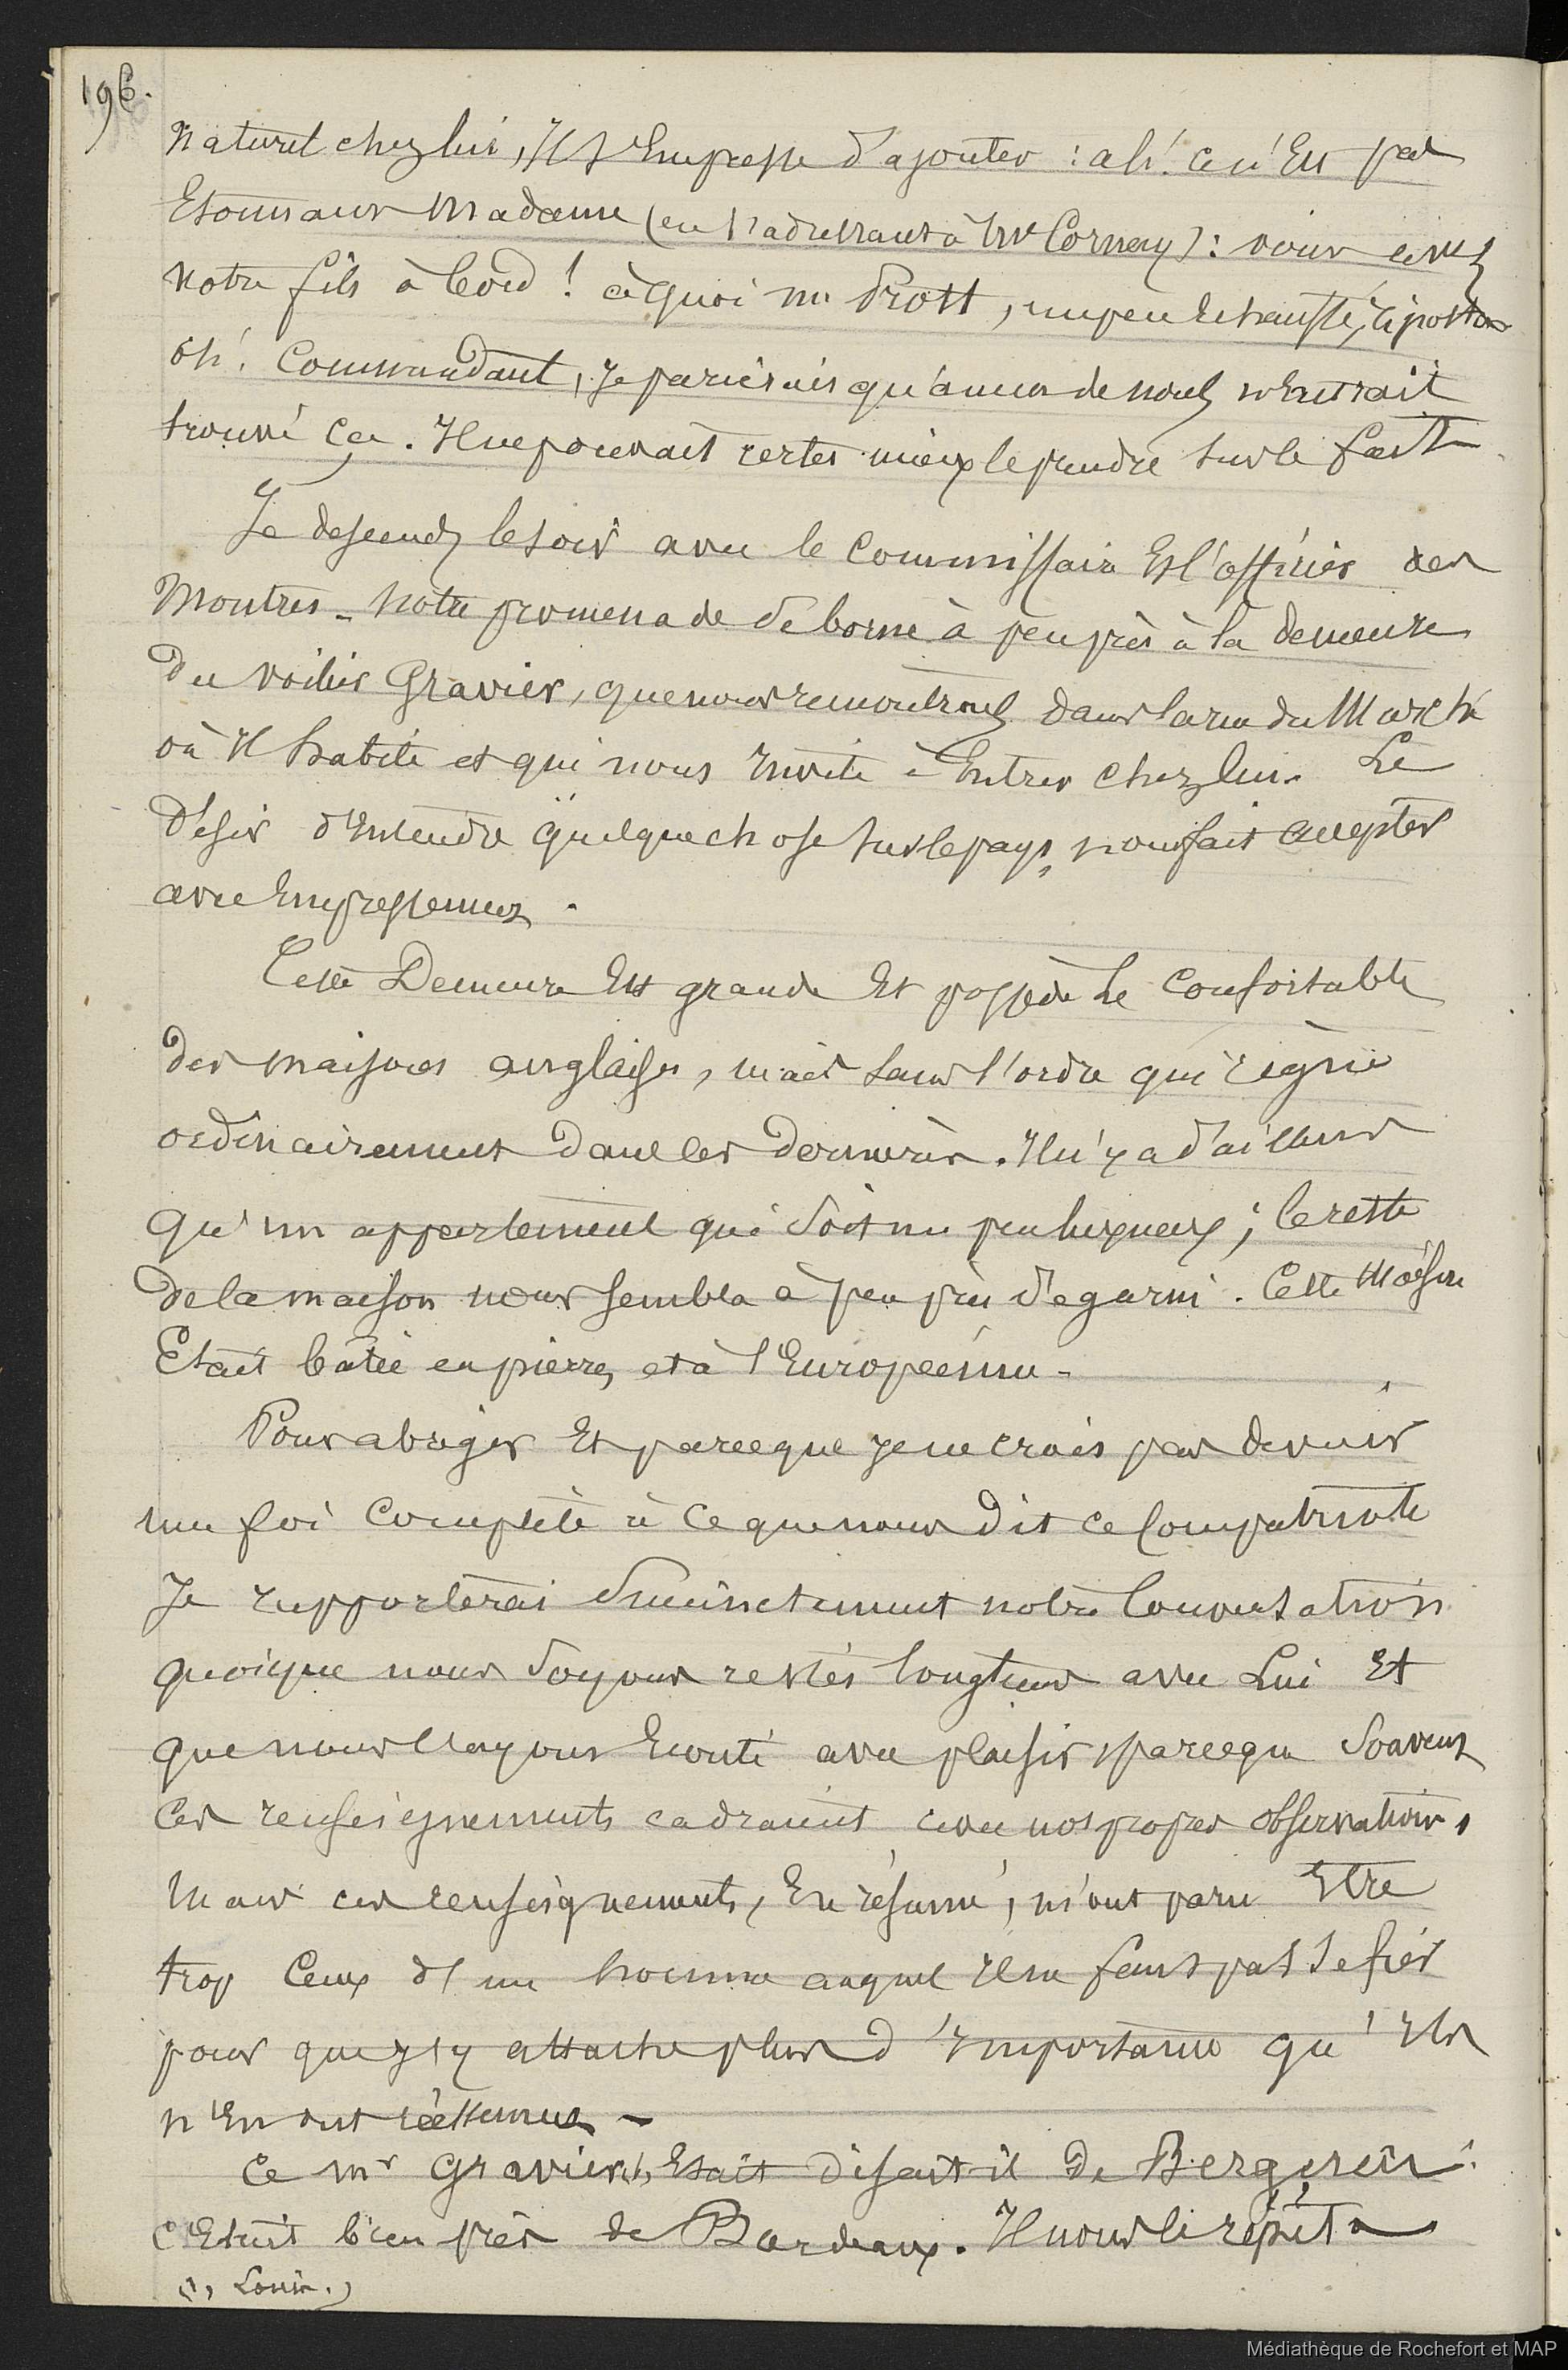 196.
naturel chez lui, Il s'Empresse d'ajouter : ah! ce n'Est pas
Etonnant Madame (en s'adressant à Mme Cornay) : vous avez
notre fils à bord ! à quoi mr Prott, un peu rechauffé, riposta
oh! Commandant, Je parierais qu'aucun de nous n'Aurait
trouvé ça. Il ne pouvait certes mieux le prendre sur le fait
Je descends le soir avec le Commissaire Et l'officier des
Montres - Notre promenade se borne à peu près à la demeure
du voilier Gravier, que nous rencontrons dans la rue du Marché
où Il habite et qui nous Invite à Entrer chez lui. Le
désir d'Entendre quelque chose sur le pays, nous fait accepter
avec Empressement.
Cette Demeure Est grande Et possède Le Confortable
des maisons anglaises, mais sans l'ordre qui règne
ordinairement dans les dernières. Il n'y a d'ailleurs
qu'un appartement qui Soit un peu luxueux ; le reste
de la maison nous sembla à peu près dégarni. Cette Maison
Etait bâtie en pierres, et à l'Européenne -
Pour abréger Et parceque je ne crois pas devoir
une foi Complète à Ce que nous Dit ce Compatriote
Je rapporterai Succinctement notre Conversation
quoique nous Soyons restés longtems avec Lui Et
que nous l'ayons Ecouté avec plaisir, parceque Souvent
Ces renseignements cadraient avec nos propres observations,
Mais ces renseignements, En résumé, m'ont paru Etre
trop Ceux d'un homme auquel Il ne faut pas se fier
pour que j'y attache plus d'Importance qu'Ils
n'En ont réellement -
Ce mr Gravier (1) Etait disait-il De Bergerein :
C'Etait bien près de Bordeaux. Il nous le répéta
(1, Louis.)
Médiathèque de Rochefort et MAP